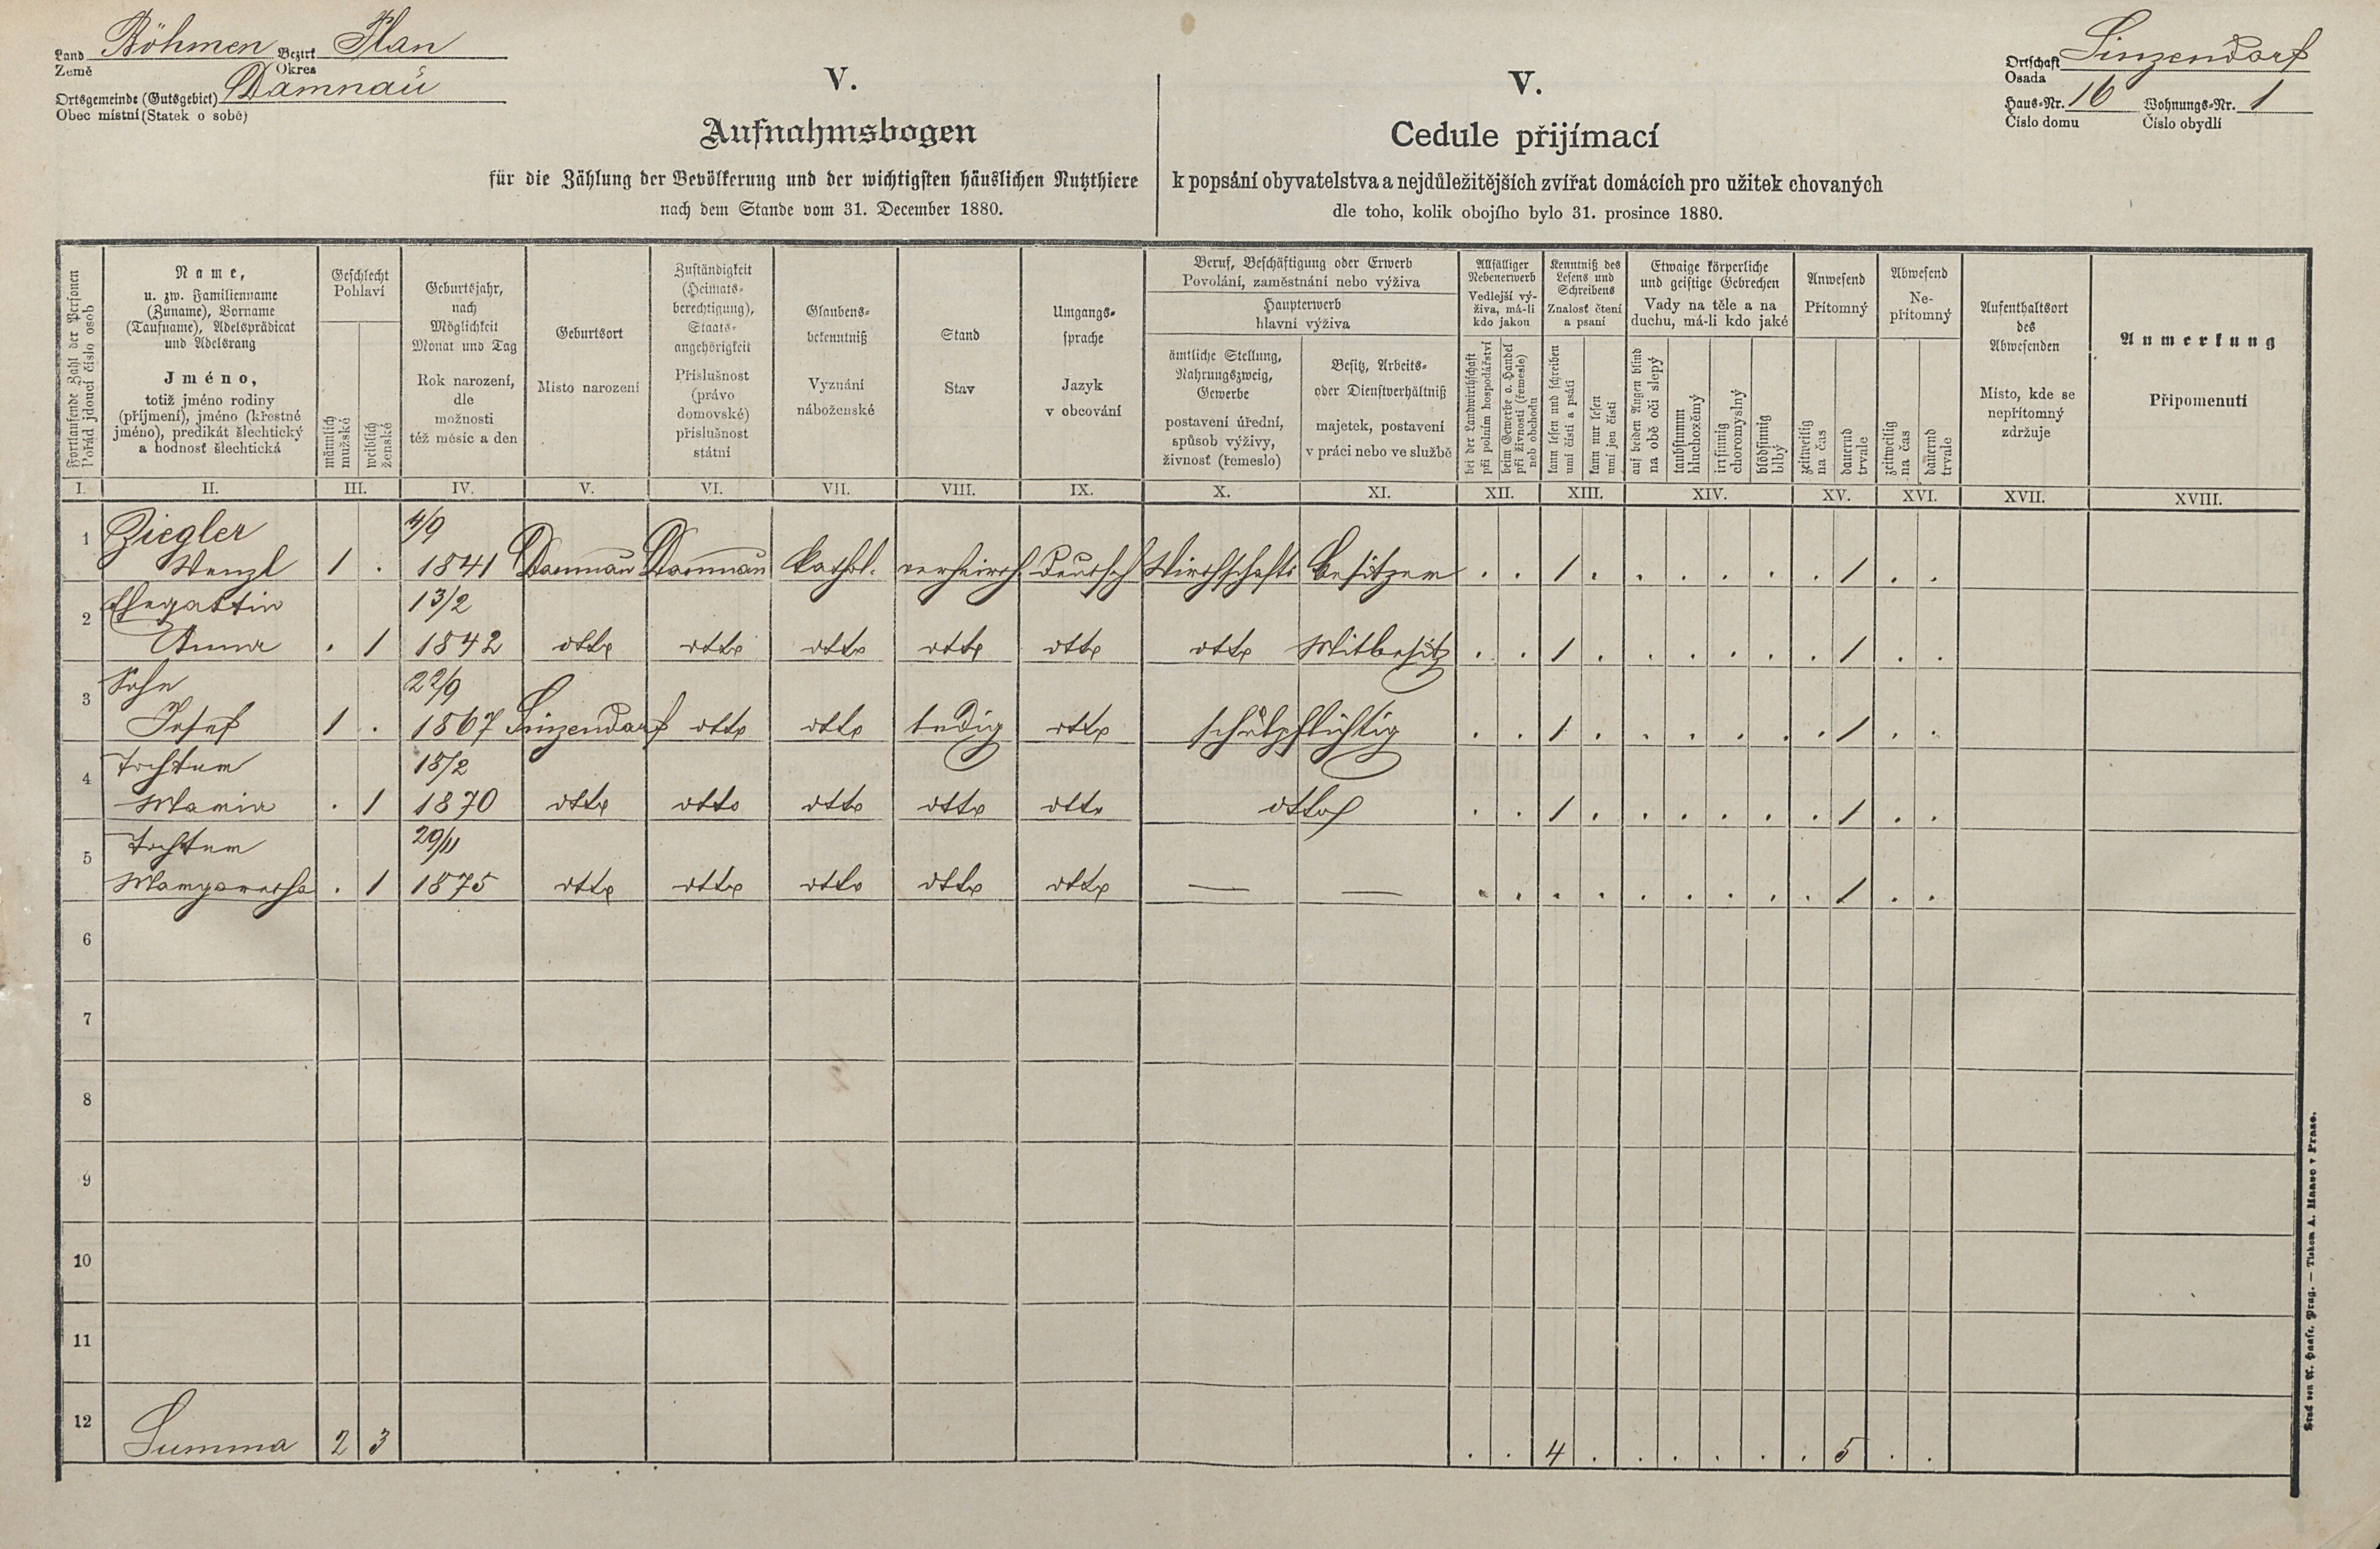 Land Böhmen Bezirk Plan
Země Okres
Ortsgemeinde (Gutsgebiet) Damnau
Obec místní (Statek o sobě)
V.
Aufnahmsbogen
für die Zählung der Bevölkerung und der wichtigsten häuslichen Nutzthiere
nach dem Stande vom 31. December 1880.
V.
Cedule přijímací
k popsání obyvatelstva a nejdůležitějších zvířat domácích pro užitek chovaných
dle toho, kolik obojího bylo 31. prosince 1880.
Ortschaft Sinzendorf
Osada
Haus-Nr. 16 Wohnungs-Nr. 1
Číslo domu Číslo obydlí
Fortlaufende Zahl der Personen
Pořád jdoucí číslo osob
Name,
u. zw. Familienname
(Zuname), Vorname
(Taufname), Adelsprädicat
und Adelsrang
Jméno,
totiž jméno rodiny
(příjmení), jméno (křestné
jméno), predikát šlechtický
a hodnosť šlechtická
Geschlecht
Pohlaví
männlich
mužské
weiblich
ženské
Geburtsjahr,
nach
Möglichkeit
Monat und Tag
Rok narození,
dle
možnosti
též měsíc a den
Geburtsort
Místo narození
Zuständigkeit
(Heimats-
berechtigung),
Staats-
angehörigkeit
Příslušnost
(právo
domovské)
příslušnost
státní
Glaubens-
bekenntniß
Vyznání
náboženské
Stand
Stav
Umgangs-
sprache
Jazyk
v obcování
Beruf, Beschäftigung oder Erwerb
Povolání, zaměstnání nebo výživa
Haupterwerb
hlavní výživa
ämtliche Stellung,
Nahrungszweig,
Gewerbe
postavení úřední,
spůsob výživy,
živnosť (řemeslo)
Besitz, Arbeits-
oder Dienstverhältniß
majetek, postavení
v práci nebo ve službě
Allfälliger
Nebenerwerb
Vedlejší vý-
živa, má-li
kdo jakou
bei der Landwirthschaft
při polním hospodářství
beim Gewerbe o. Handel
při živnosti (řemesle)
neb obchodu
Kenntniß des
Lesens und
Schreibens
Znalosť čtení
a psaní
kann lesen und schreiben
umí čísti a psáti
kann nur lesen
umí jen čísti
Etwaige körperliche
und geistige Gebrechen
Vady na těle a na
duchu, má-li kdo jaké
auf beiden Augen blind
na obě oči slepý
taubstumm
hluchoněmý
irrsinnig
choromyslný
blödsinnig
blbý
Anwesend
Přítomný
zeitweilig
na čas
dauernd
trvale
Abwesend
Ne-
přítomný
zeitweilig
na čas
dauernd
trvale
Aufenthaltsort
des
Abwesenden
Místo, kde se
nepřítomný
zdržuje
Anmerkung
Připomenutí
I. II. III. IV. V. VI. VII. VIII. IX. X. XI. XII. XIII. XIV. XV. XVI. XVII. XVIII.
Ziegler 4/9
1 Wenzl 1 . 1841 Damnau Damnau kathol. verheirath. Deutsch Wirthschafts Besitzer . . 1 . . . . . . 1 . .
Ehegattin 13/2
2 Anna . 1 1842 otto otto otto otto otto otto Mitbesitz . . 1 . . . . . . 1 . .
Sohn 22/9
3 Josef 1 . 1867 Sinzendorf otto otto ledig otto schulpflichtig . . 1 . . . . . . 1 . .
Tochter 18/2
4 Maria . 1 1870 otto otto otto otto otto otto . . 1 . . . . . . 1 . .
Tochter 29/11
5 Margaretha . 1 1875 otto otto otto otto otto — — . . . . . . . . . 1 . .
6
7
8
9
10
11
12 Summa 2 3 . . 4 . . . . . . 5 . .
Druck von A. Haase, Prag. — Tiskem A. Haase v Praze.